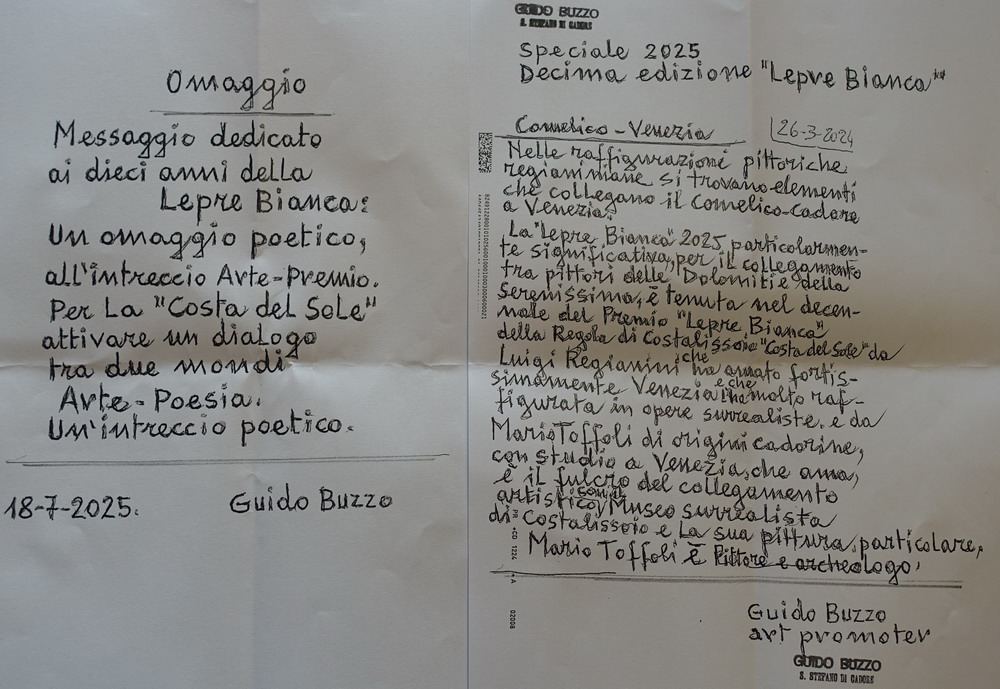 Omaggio
Messaggio dedicato
ai dieci anni della
Lepre Bianca:
Un omaggio poetico,
all'intreccio Arte-Premio.
Per La "Costa del Sole"
attivare un dialogo
tra due mondi
Arte-Poesia.
Un'intreccio poetico.
18-7-2025.
Guido Buzzo
GUIDO BUZZO
S. STEFANO DI CADORE
Speciale 2025
Decima edizione "Lepre Bianca"
Comelico-Venezia
26-3-2024
Nelle raffigurazioni pittoriche
regianiniane si trovano elementi
che collegano il Comelico-Cadore
a Venezia.
La "Lepre Bianca" 2025, particolarmen-
te significativa, per il collegamento
tra pittori delle Dolomiti e della
Serenissima, è tenuta nel decen-
nale del Premio "Lepre Bianca"
della Regola di Costalissoio "Costa del Sole" da
Luigi Regianini che ha amato fortis-
simamente Venezia e che l'ha molto raf-
figurata in opere surrealiste. e da
Mario Toffoli di origini cadorine,
con studio a Venezia, che ama,
è il fulcro del collegamento
artistico, con il Museo surrealista
di Costalissoio e La sua pittura particolare,
Mario Toffoli è Pittore e archeologo.
Guido Buzzo
art promoter
GUIDO BUZZO
S. STEFANO DI CADORE